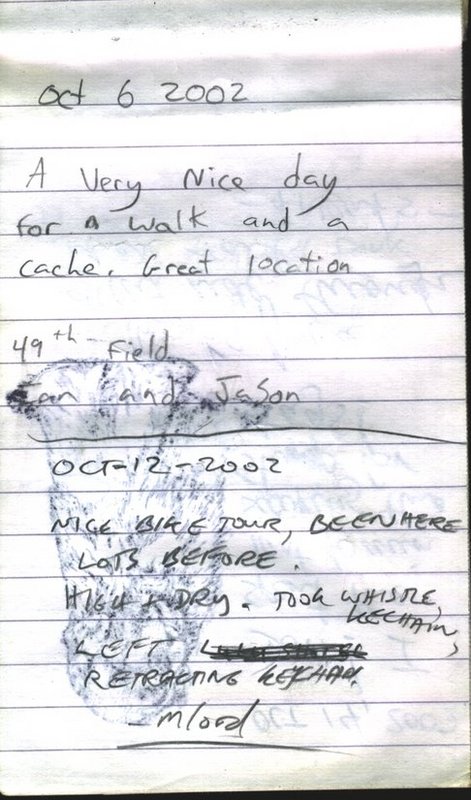 Oct 6 2002
A Very Nice day
for a walk and a
cache. Great location
49th Field
Ian and Jason
OCT-12-2002
NICE BIKE TOUR, BEEN HERE
LOTS BEFORE.
HIGH & DRY. TOOK WHISTLE,
KECHAIN,
LEFT
RETRACTING KEYCHAIN.
- Mlord